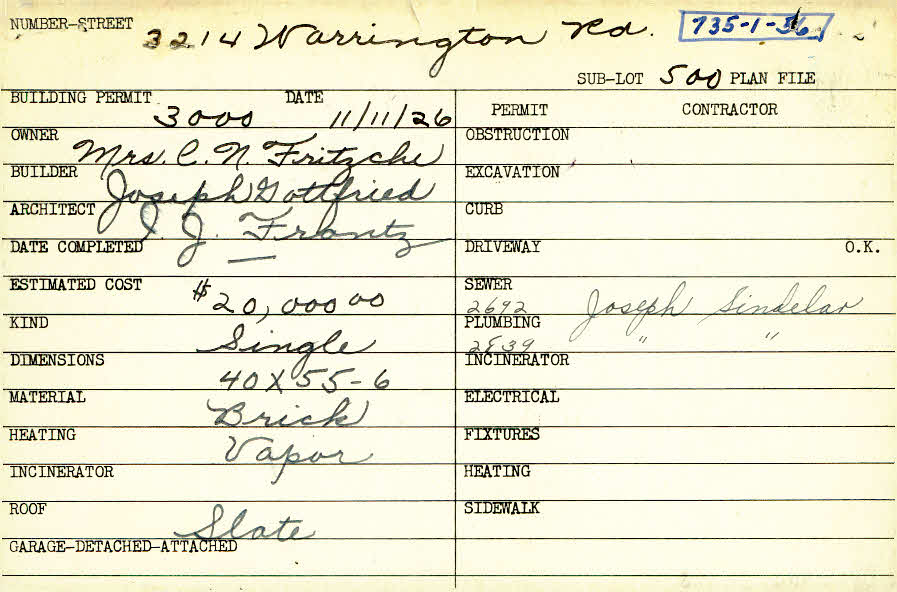 NUMBER-STREET 3214 Warrington Rd. 735-1-36
SUB-LOT 500 PLAN FILE
BUILDING PERMIT 3000 DATE 11/11/26
OWNER Mrs. C. N. Fritzche
BUILDER Joseph Gottfried
ARCHITECT I. J. Frantz
DATE COMPLETED —
ESTIMATED COST $20,000 00
KIND Single
DIMENSIONS 40 X 55-6
MATERIAL Brick
HEATING Vapor
INCINERATOR
ROOF Slate
GARAGE-DETACHED-ATTACHED
PERMIT CONTRACTOR
OBSTRUCTION
EXCAVATION
CURB
DRIVEWAY O.K.
SEWER 2692 Joseph Sindelar
PLUMBING 2839 " "
INCINERATOR
ELECTRICAL
FIXTURES
HEATING
SIDEWALK